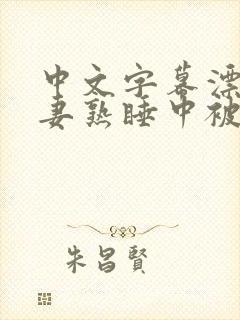 中文字幕漂
妻熟睡中被
朱昌賢